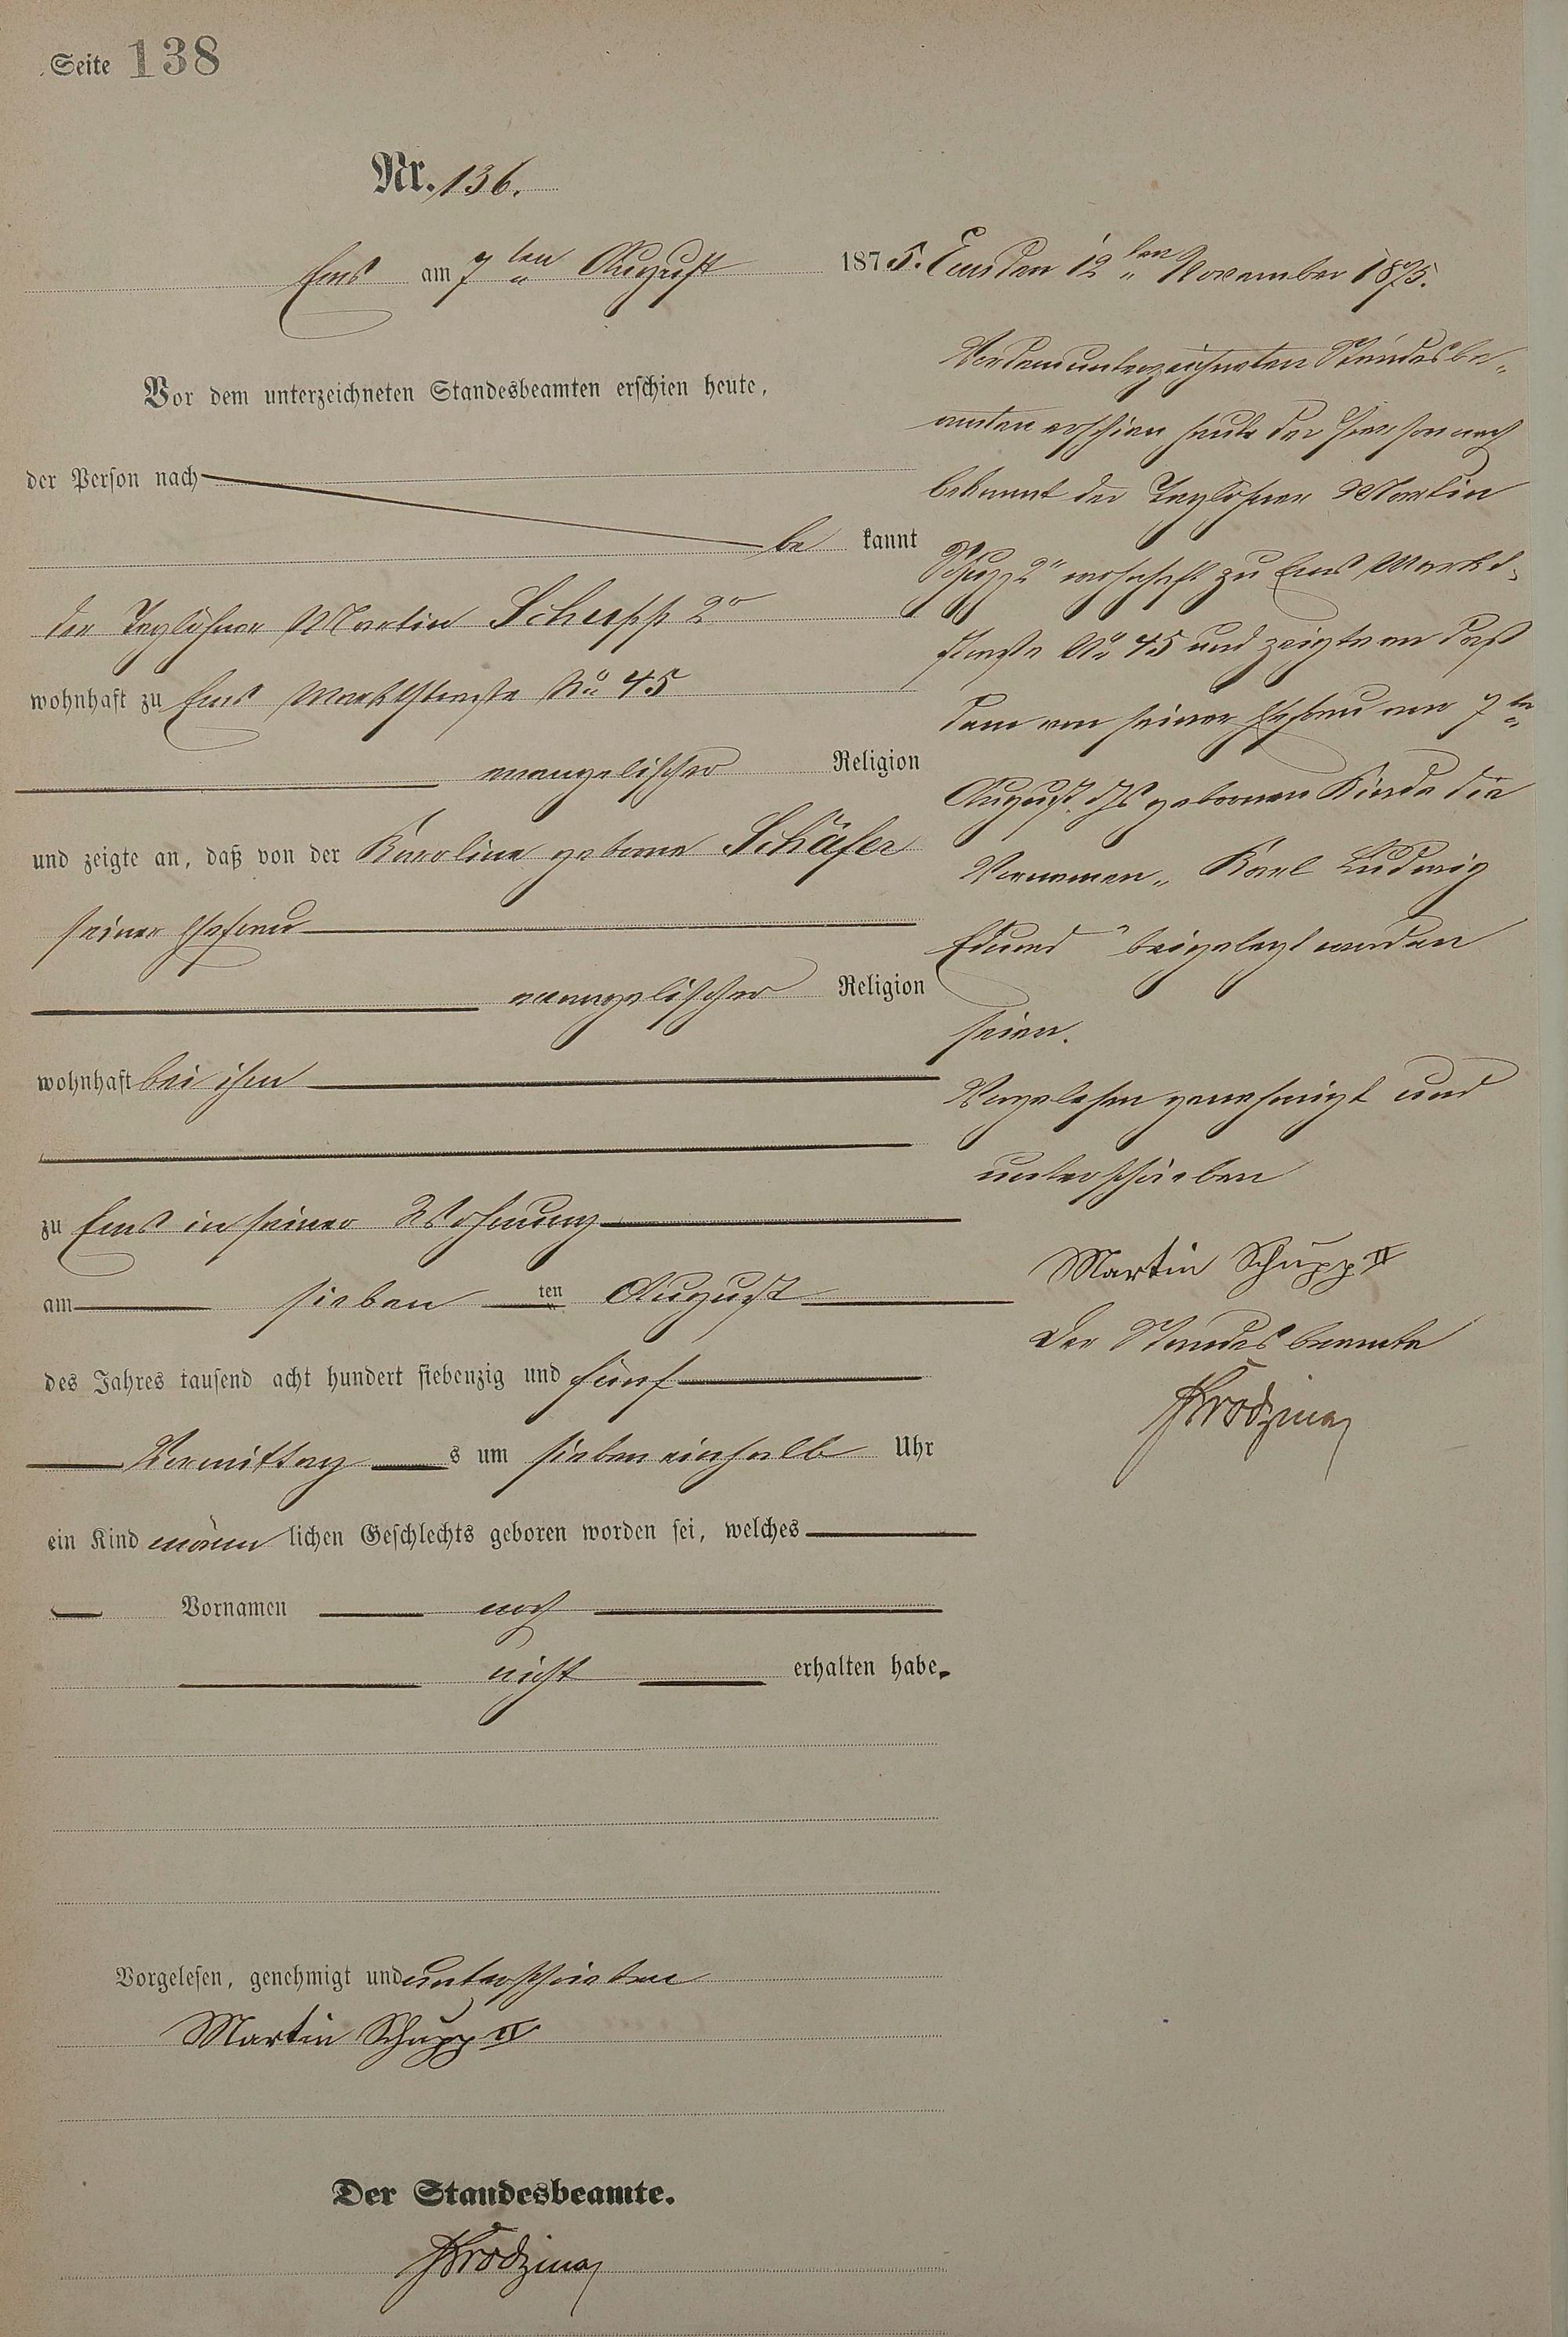 Seite 138
Nr. 136.
Ems am 7ten August 1875.
Vor dem unterzeichneten Standesbeamten erschien heute,
der Person nach
be kannt
der Taglöhner Martin Schupp 2r
wohnhaft zu Ems Marktstraße No 45
evangelischer Religion
und zeigte an, daß von der Karoline geborne Schäfer
seiner Ehefrau
evangelischer Religion
wohnhaft bei ihm
zu Ems in seiner Wohnung
am sieben ten August
des Jahres tausend acht hundert siebenzig und fünf
Vormittag s um sieben einhalb Uhr
ein Kind männ lichen Geschlechts geboren worden sei, welches
Vornamen noch
nicht erhalten habe.
Vorgelesen, genehmigt und unterschrieben
Martin Schupp II
Der Standesbeamte.
Ems den 12ten November 1875.
Vor dem unterzeichneten Standesbe-
amten erschien heute der Person nach
bekannt der Taglöhner Martin
Schupp 2r wohnhaft zu Ems Markt-
straße No 45 und zeigte an daß
dem von seiner Ehefrau am 7ten
August d Js gebornen Kinde die
Vornamen „Karl Ludwig
Eduard“ beigelegt worden
seien.
Vorgelesen genehmigt und
unterschrieben
Martin Schupp II
Der Standesbeamte